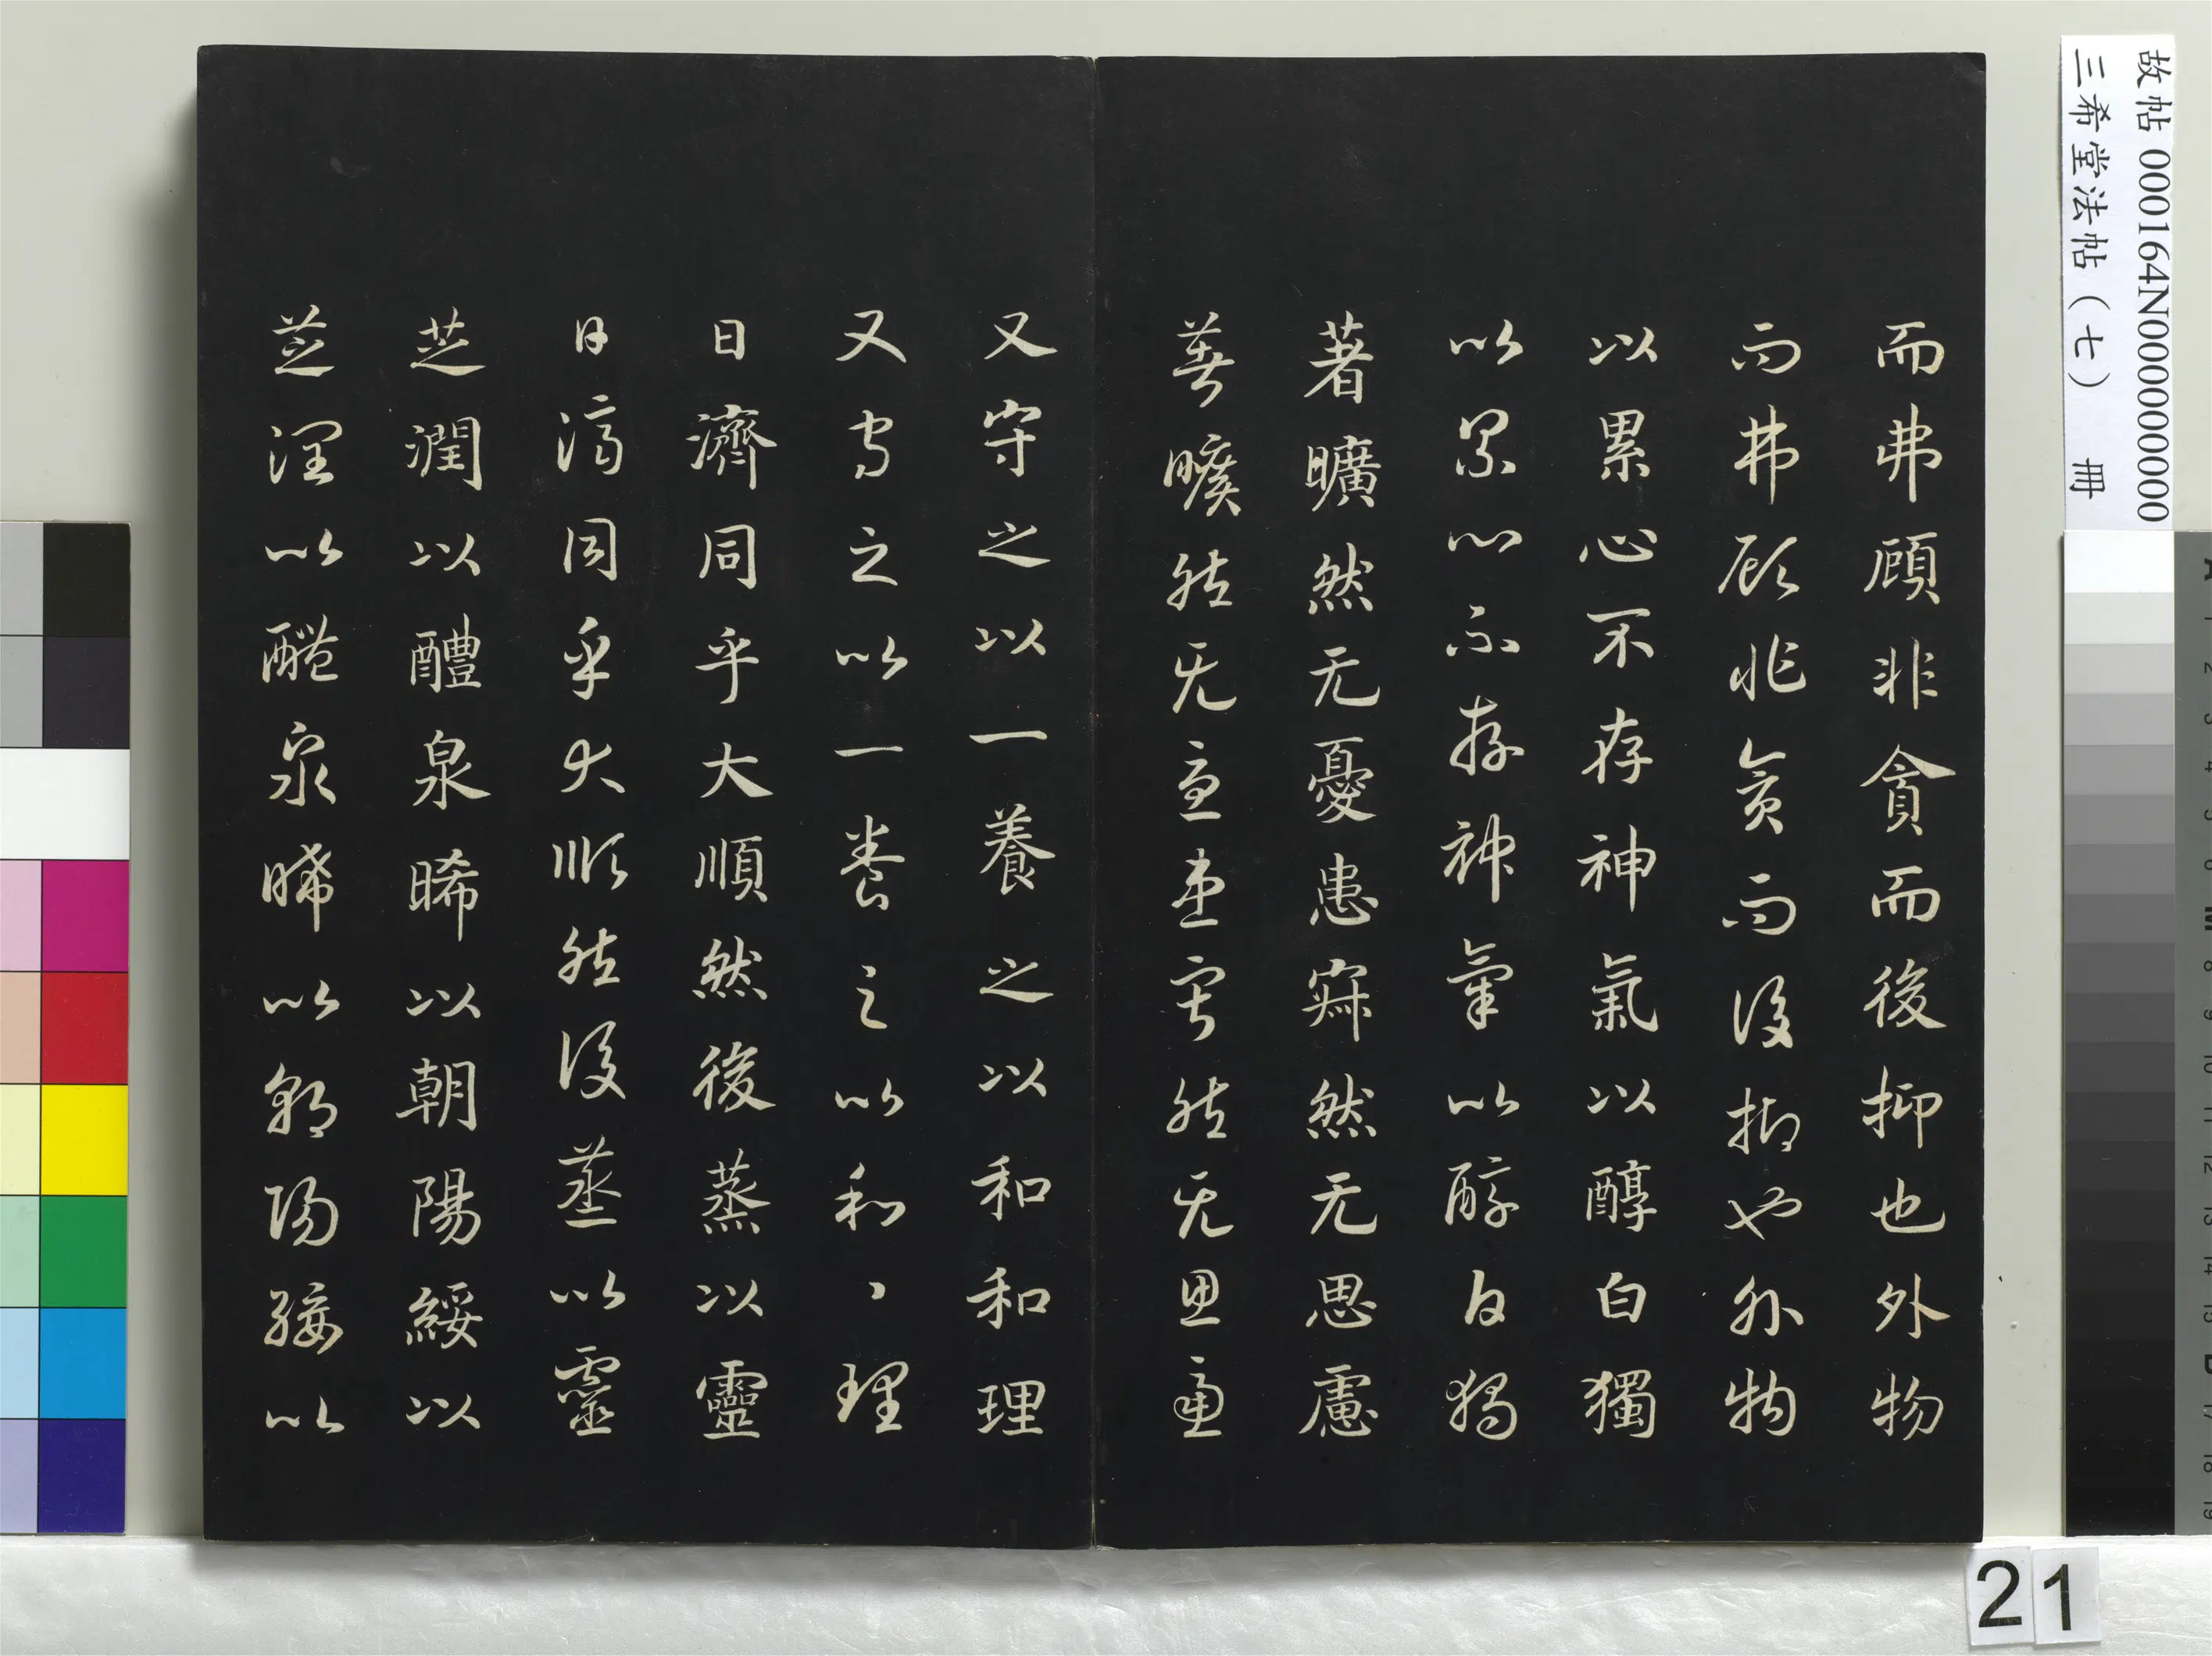 而弗顧非貪而後抑也外物
而弗顧非貪而後抑也外物
以累心不存神氣以醇白獨
以累心不存神氣以醇白獨
著曠然无憂患寂然无思慮
著曠然无憂患寂然无思慮
又守之以一養之以和和理
又守之以一養之以和、理
日濟同乎大順然後蒸以靈
日濟同乎大順然後蒸以靈
芝潤以醴泉晞以朝陽綏以
芝潤以醴泉晞以朝陽綏以
故帖 000164N000000000
三希堂法帖（七） 冊
21